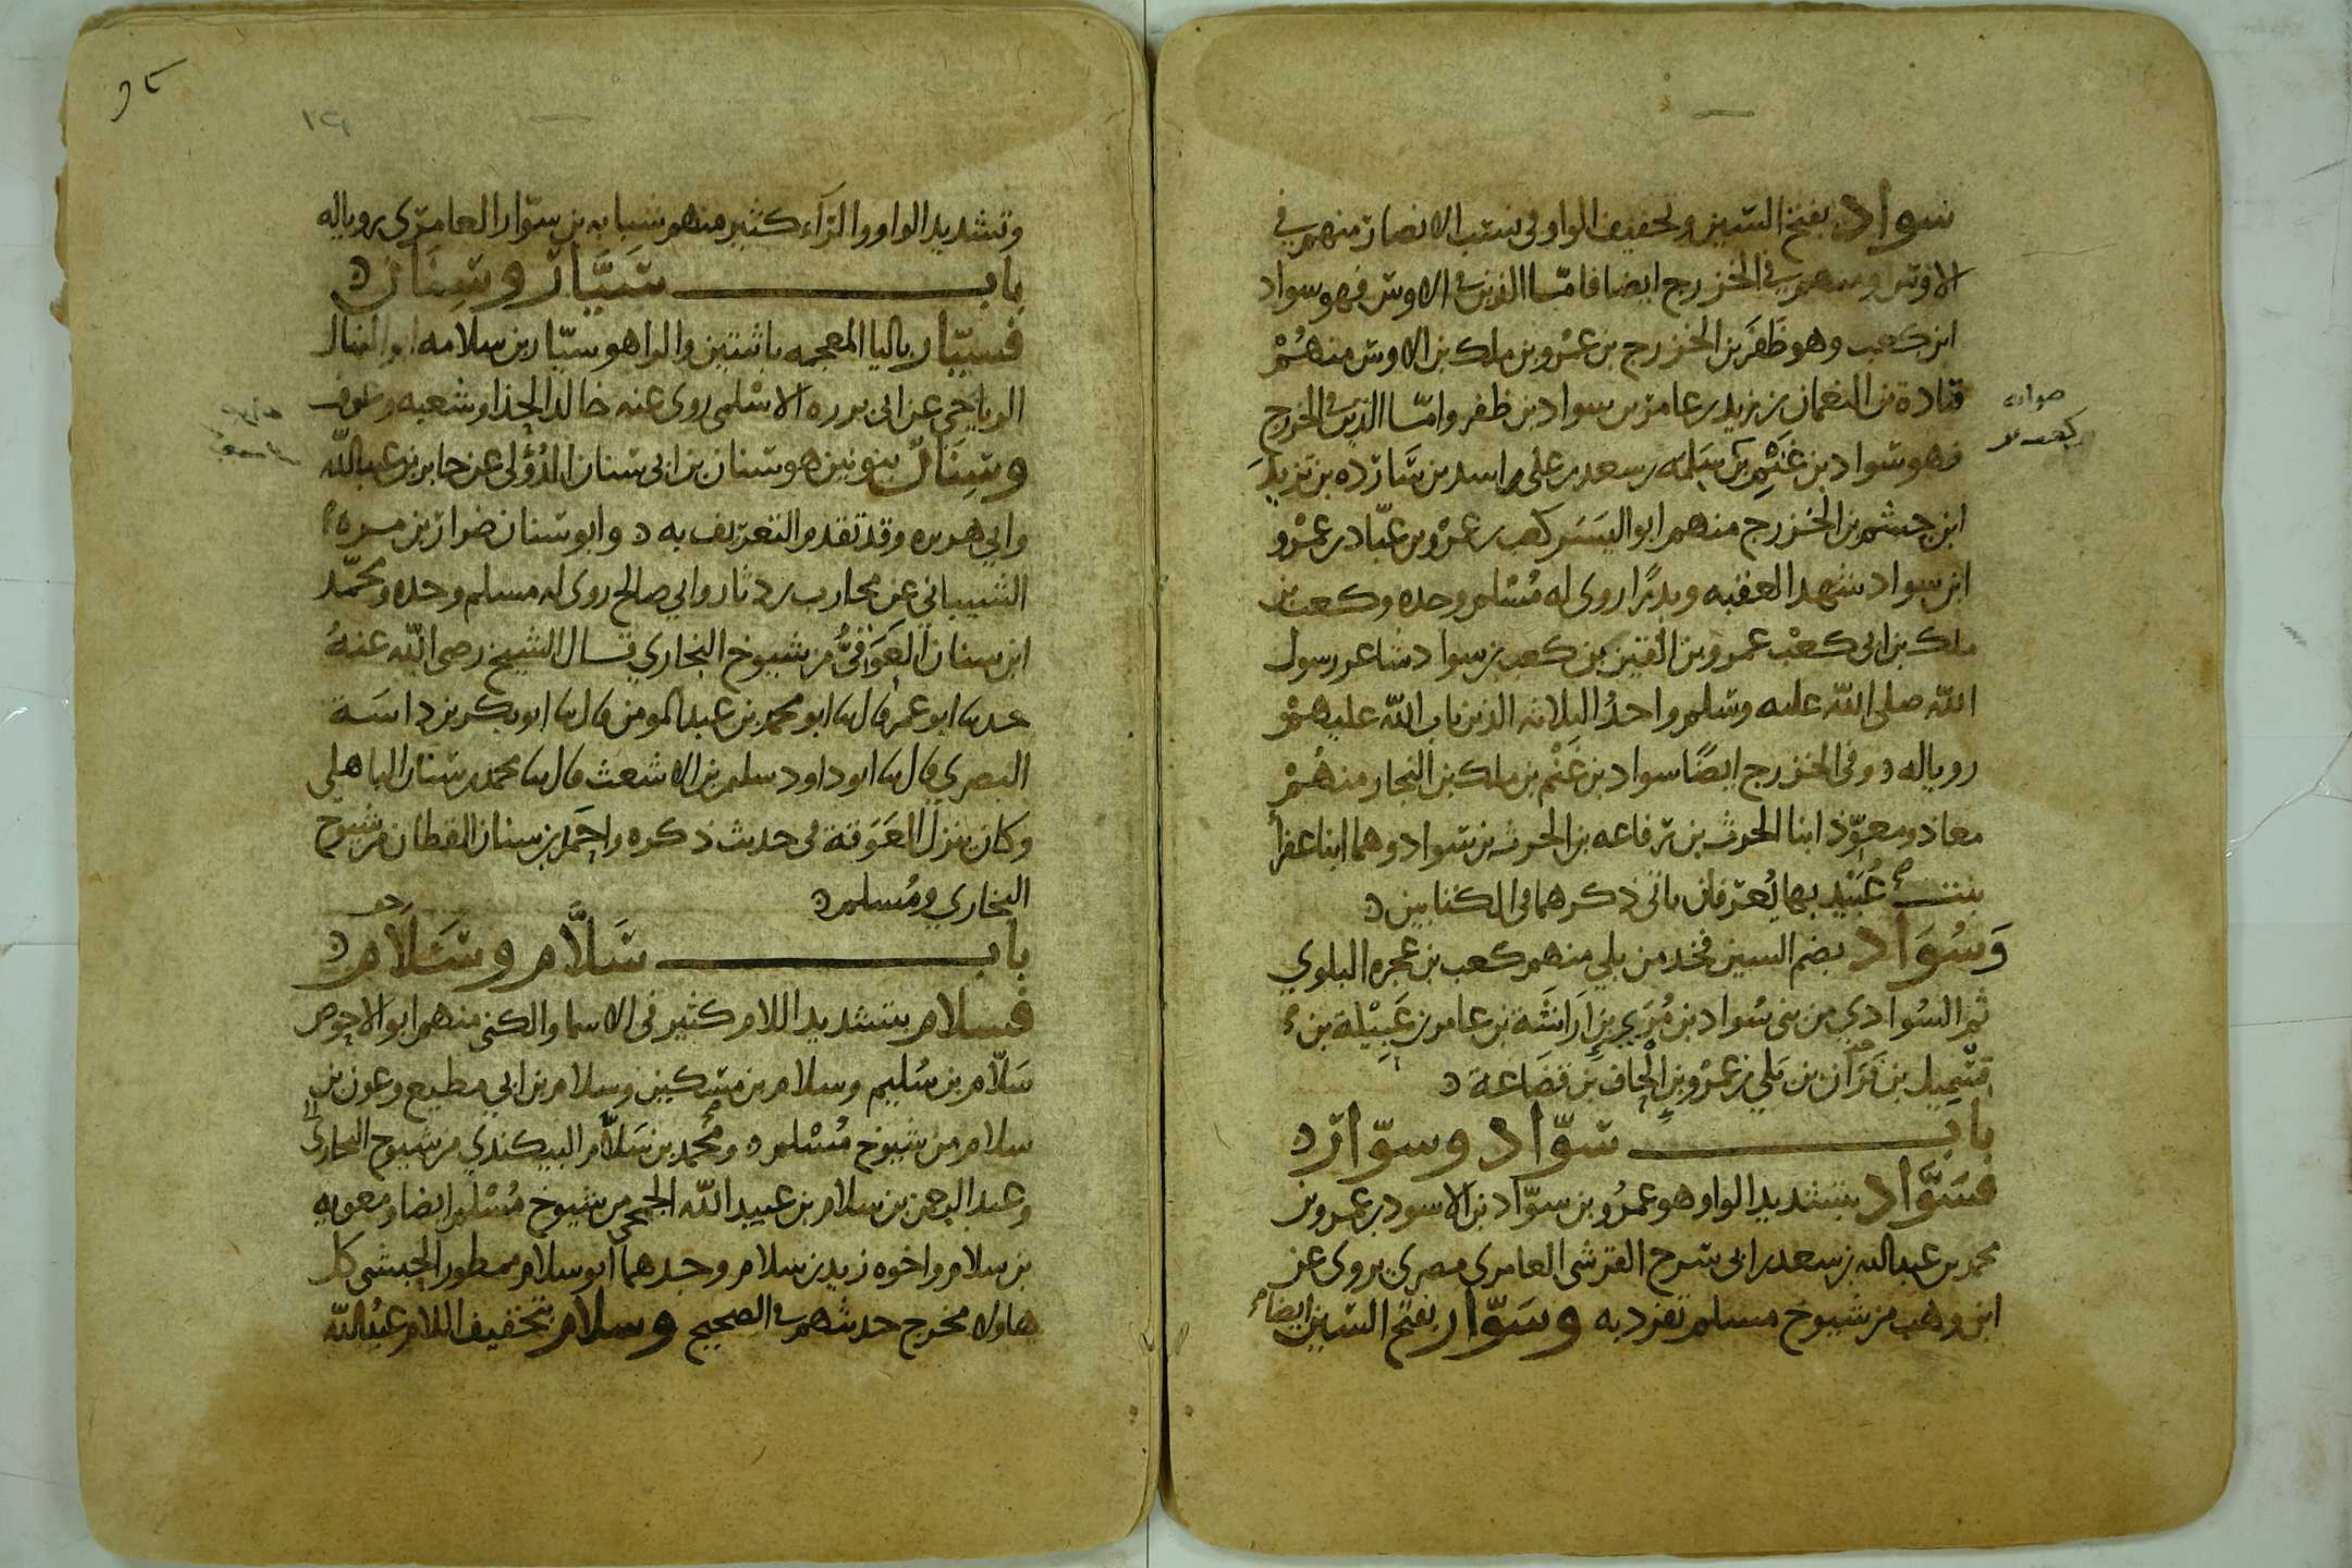 سواد بفتح السين وتخفيف الواو فى نسب الانصار منهم فى
الاوس ومنهم فى الخزرج ايضا فامّا الذين فى الاوس فهو سواد
ابن كعب وهو ظَفَر بن الخزرج بن عمْرو بن ملك بن الاوس منهُمْ
قتادة بن النعمان بن زيد بن عامر بن سواد بن ظفر وامّا الذين فى الخزرج
فهو سواد بن غَنْم بن سَلمه بن سعد بن على بن اسد بن سَارده بن تزيد
ابن جشم بن الخزرج منهم ابو اليَسَر كعب بن عمْرو بن عبّاد بن عمْرو
ابن سواد شهد العقبه وبدرًا روى له مُسْلم وحده وكعب بن
ملك بن ابى كعْب عمرو بن القين بن كعب بن سواد شاعر رسول
الله صلى الله عليه وسلم واحدُ الثلاثه الذين تاب الله عليهمْ
رويا له وفى الخزرج ايضًا سواد بن غَنْم بن ملك بن النجار منهُمْ
معاذ ومعوّذ ابنا الحرث بن رفاعه بن الحرث بن سواد وهما ابنا عفرا
بنت عُبَيْد بها يُعرَفان ياتى ذكرهما فى الكتابين
وَسُوَاد بضم السين فخذ من بلي منهم كعب بن عجره البلوي
ثم السُوادي من بنى سُواد بن مُرَي بن اَرَاشَه بن عامر بن عَبِيْلة بن
قسْمِيل بن فَرَّان بن بَلي بن عمْرو بن الْحاف بن قضَاعة
باب سَوّاد وسوّار
فسَوَّاد بتشديد الواو هو عمْرُو بن سوّاد بن الاسود بن عمرو بن
محمد بن عبد الله بن سعد بن ابى سرح القرشى العامري مصري يروى عن
ابن وهب من شيوخ مسلم تفرد به وسَوّار بفتح السين ايضا
وتشديد الواو والرّاء كثير منهم شبابه بن سوّار العامرى رويا له
باب سَيَّار وسِنَان
فسيّار باليا المعجمه باثنتين والرا هو سيّار بن سلامه ابو المنهال
الرياحي عن ابى برزه الاسْلمى روى عنه خالد الحذا وشعبه وعوف
وسِنَان بنونين هو سنان بن ابى سنان الدُؤَلى عن جابر بن عبد الله
وابي هريره وقد تقدم التعريف به وابو سنان ضرار بن مره
الشيباني عن محارب بن دثار وابي صالح روى له مسلم وحده ومحمّد
ابن سنان العَوَقىُّ من شيوخ البخاري قال الشيخ رضى الله عنهُ
حدثنا ابو عمر قال نا ابو محمد بن عبد المومن قال نا ابو بكر بن داسَة
البصري قال نا ابو داود سليمن بن الاشعث قال نا محمد بن سنان الباهلى
وكان ينزل العَوَقة فى حديث ذكره واحْمَد بن سنان القطان من شيوخ
البخاري ومُسلم
باب سَلَّام وسَلَام
فسلام بتشديد اللام كثير فى الاسما والكنى منهم ابو الاحوص
سَلّام بن سُليم وسلام بن مسكين وسلام بن ابي مطيع وعون بن
سلام من شيوخ مُسْلم ومحمد بن سَلّام البيكندي من شيوخ البخارى
وعبد الرحمن بن سلام بن عبيد الله الجمحى من شيوخ مُسْلم ايضا ومعويه
بن سلام واخوه زيد بن سلام وجدهما ابو سلام ممطور الحبشى كل
هاولا مخرج حديثهم فى الصحيح وسلام بتخفيف اللام عبْدالله